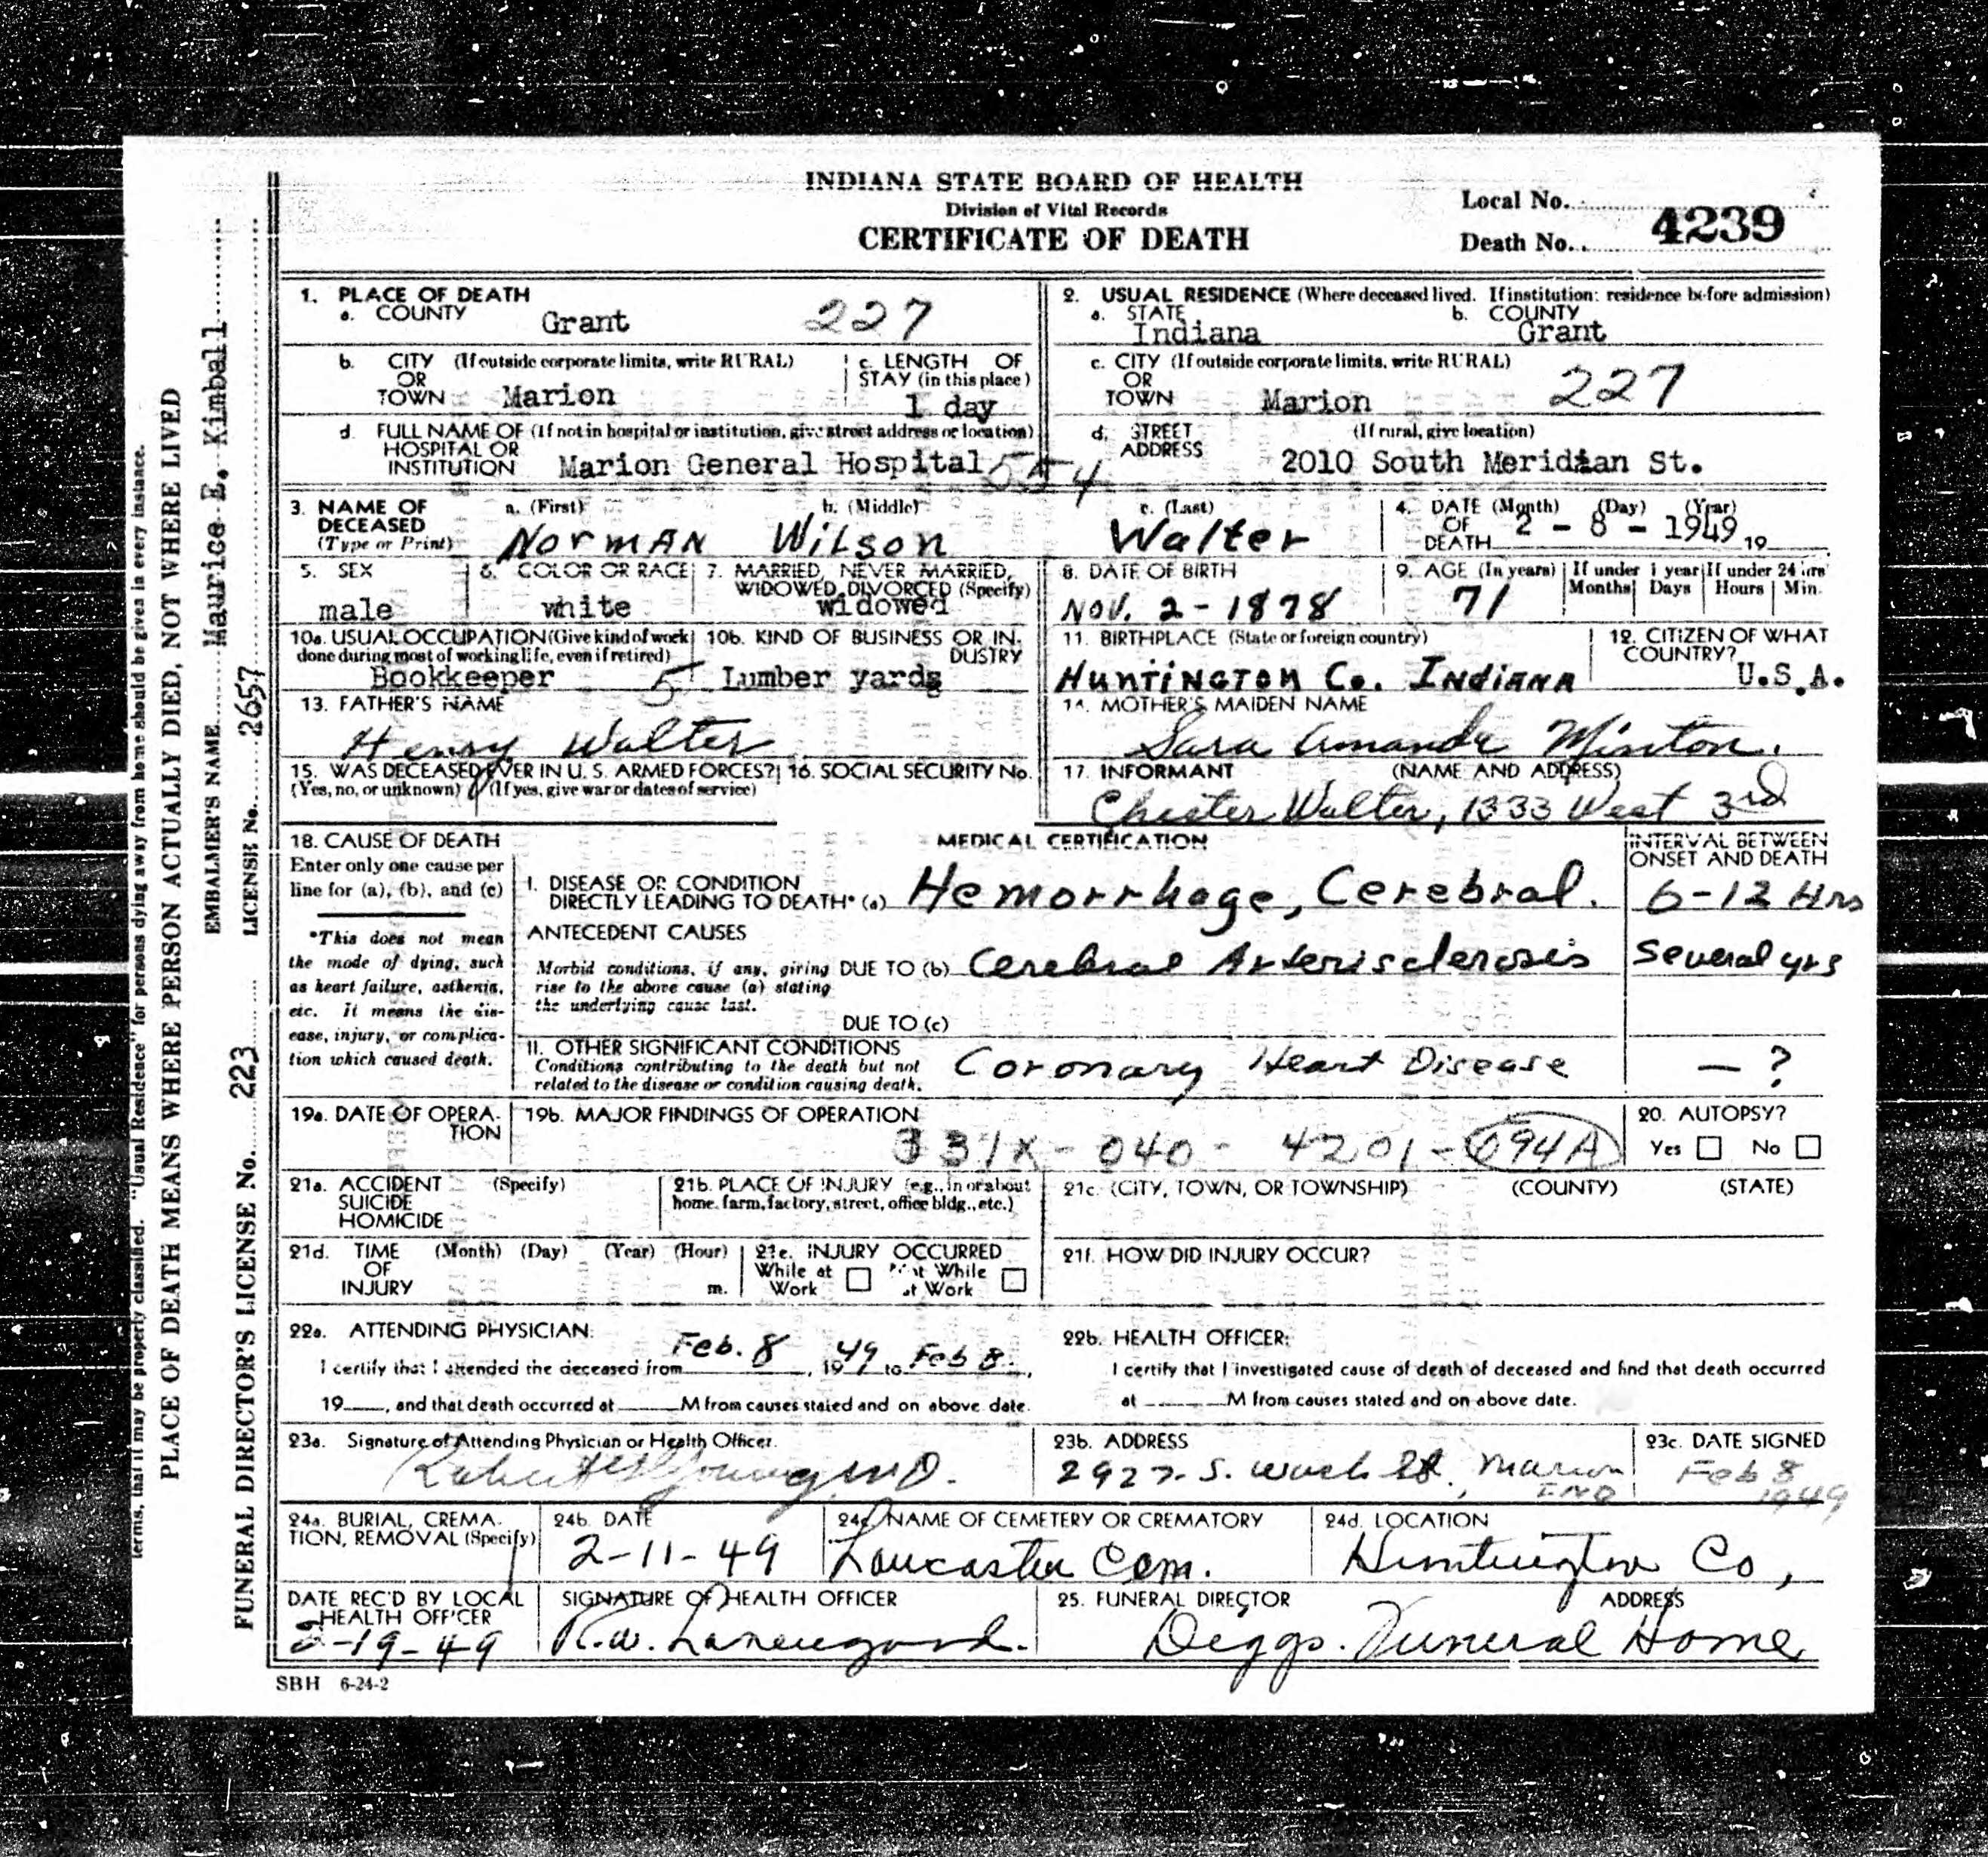 INDIANA STATE BOARD OF HEALTH
Division of Vital Records
CERTIFICATE OF DEATH
Local No.
Death No. 4239
1. PLACE OF DEATH
a. COUNTY Grant 227
2. USUAL RESIDENCE (Where deceased lived. If institution: residence before admission)
a. STATE Indiana b. COUNTY Grant
b. CITY (If outside corporate limits, write RURAL) OR TOWN Marion
c. LENGTH OF STAY (in this place) 1 day
c. CITY (If outside corporate limits, write RURAL) OR TOWN Marion 227
d. FULL NAME OF (If not in hospital or institution, give street address or location) HOSPITAL OR INSTITUTION Marion General Hospital 554
d. STREET ADDRESS (If rural, give location) 2010 South Meridian St.
3. NAME OF DECEASED (Type or Print) a. (First) Norman b. (Middle) Wilson c. (Last) Walter
4. DATE OF DEATH (Month) (Day) (Year) 2 - 8 - 1949 19
5. SEX male
6. COLOR OR RACE white
7. MARRIED, NEVER MARRIED, WIDOWED, DIVORCED (Specify) widowed
8. DATE OF BIRTH Nov. 2 - 1878
9. AGE (In years) 71 If under 1 year Months Days If under 24 hrs Hours Min.
10a. USUAL OCCUPATION (Give kind of work done during most of working life, even if retired) Bookkeeper 5
10b. KIND OF BUSINESS OR INDUSTRY Lumber yards
11. BIRTHPLACE (State or foreign country) Huntington Co. Indiana
12. CITIZEN OF WHAT COUNTRY? U.S.A.
13. FATHER'S NAME Henry Walter
14. MOTHER'S MAIDEN NAME Sara Amanda Minton.
15. WAS DECEASED EVER IN U. S. ARMED FORCES? (Yes, no, or unknown) (If yes, give war or dates of service)
16. SOCIAL SECURITY No.
17. INFORMANT (NAME AND ADDRESS) Chester Walter, 1333 West 3rd
18. CAUSE OF DEATH
Enter only one cause per line for (a), (b), and (c)
MEDICAL CERTIFICATION
INTERVAL BETWEEN ONSET AND DEATH
I. DISEASE OR CONDITION DIRECTLY LEADING TO DEATH* (a) Hemorrhage, Cerebral. 6-12 Hrs
*This does not mean the mode of dying, such as heart failure, asthenia, etc. It means the disease, injury, or complication which caused death.
ANTECEDENT CAUSES
Morbid conditions, if any, giving rise to the above cause (a) stating the underlying cause last.
DUE TO (b) Cerebral Arterisclerosis Several yrs
DUE TO (c)
II. OTHER SIGNIFICANT CONDITIONS
Conditions contributing to the death but not related to the disease or condition causing death.
Coronary Heart Disease — ?
19a. DATE OF OPERATION
19b. MAJOR FINDINGS OF OPERATION
331X - 040 - 4201 - 094A
20. AUTOPSY? Yes No
21a. ACCIDENT SUICIDE HOMICIDE (Specify)
21b. PLACE OF INJURY (e.g., in or about home, farm, factory, street, office bldg., etc.)
21c. (CITY, TOWN, OR TOWNSHIP) (COUNTY) (STATE)
21d. TIME OF INJURY (Month) (Day) (Year) (Hour) m.
21e. INJURY OCCURRED While at Work Not While at Work
21f. HOW DID INJURY OCCUR?
22a. ATTENDING PHYSICIAN:
I certify that I attended the deceased from Feb. 8, 1949 to Feb 8.,
19, and that death occurred at M from causes stated and on above date.
22b. HEALTH OFFICER:
I certify that I investigated cause of death of deceased and find that death occurred
at M from causes stated and on above date.
23a. Signature of Attending Physician or Health Officer.
Young M.D.
23b. ADDRESS 2927 S. Wash St., Marion IND
23c. DATE SIGNED Feb 8 1949
24a. BURIAL, CREMATION, REMOVAL (Specify)
24b. DATE 2-11-49
24c. NAME OF CEMETERY OR CREMATORY Lancaster Cem.
24d. LOCATION Huntington Co,
DATE REC'D BY LOCAL HEALTH OFFICER 2-19-49
SIGNATURE OF HEALTH OFFICER R.W.
25. FUNERAL DIRECTOR ADDRESS Diggs. Funeral Home
SBH 6-24-2
terms, that it may be properly classified. "Usual Residence" for persons dying away from home should be given in every instance.
PLACE OF DEATH MEANS WHERE PERSON ACTUALLY DIED, NOT WHERE LIVED
EMBALMER'S NAME Maurice E. Kimball
FUNERAL DIRECTOR'S LICENSE No. 223 LICENSE No. 2657